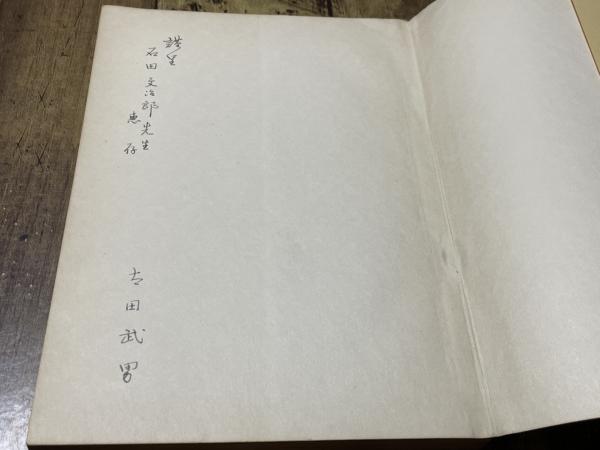 謹呈
石田文治郎先生
恵存
吉田武男